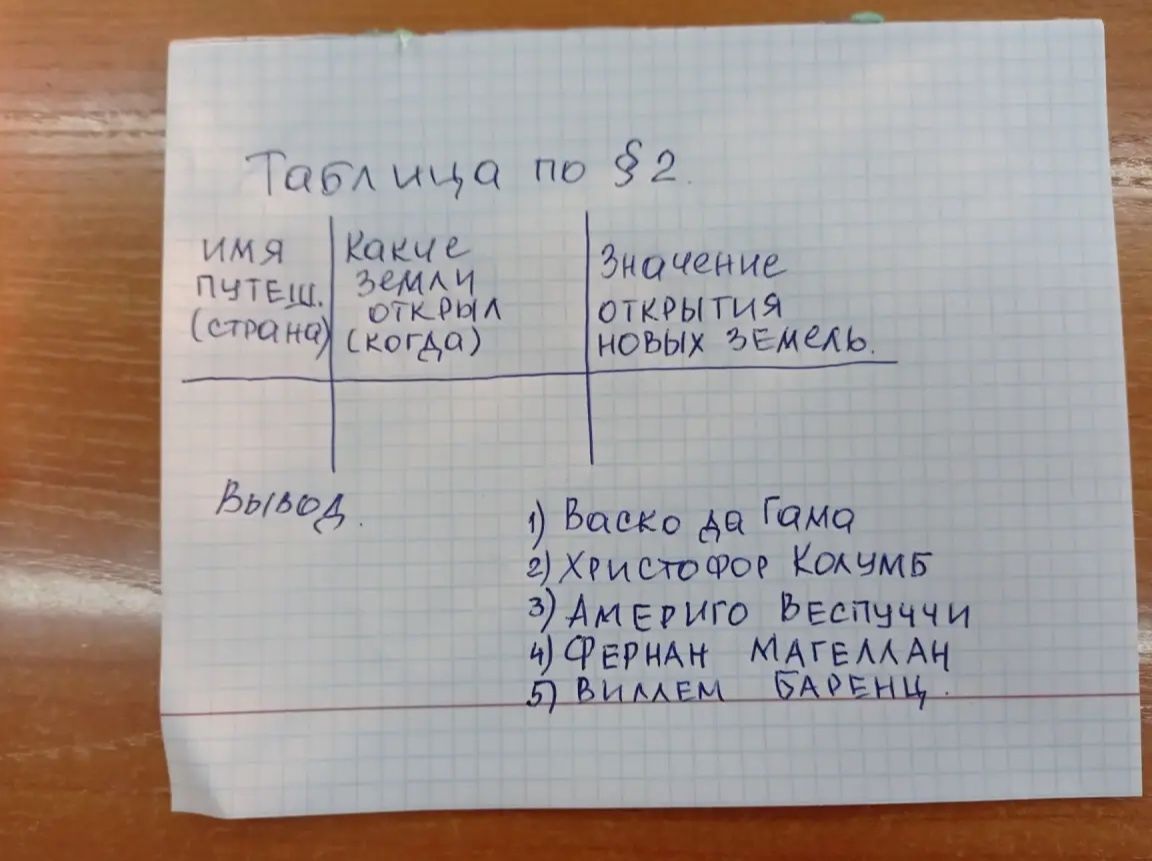 Таблица по §2.
имя
путеш.
(страна)
Какие
земли
открыл
(когда)
Значение
открытия
новых земель.
Вывод.
1) Васко да Гама
2) Христофор Колумб
3) Америго Веспуччи
4) Фернан Магеллан
5) Виллем Баренц.